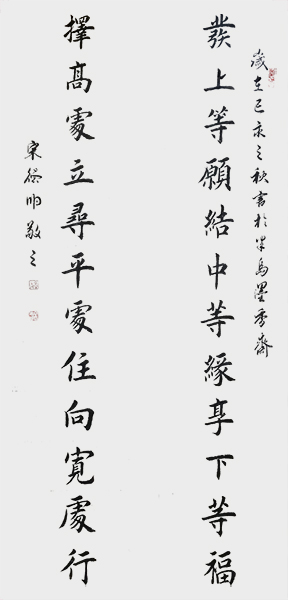 歲在己亥之秋書於島墨香齋
發上等願結中等緣享下等福
擇高處立尋平處住向寬處行
宋帅敬之